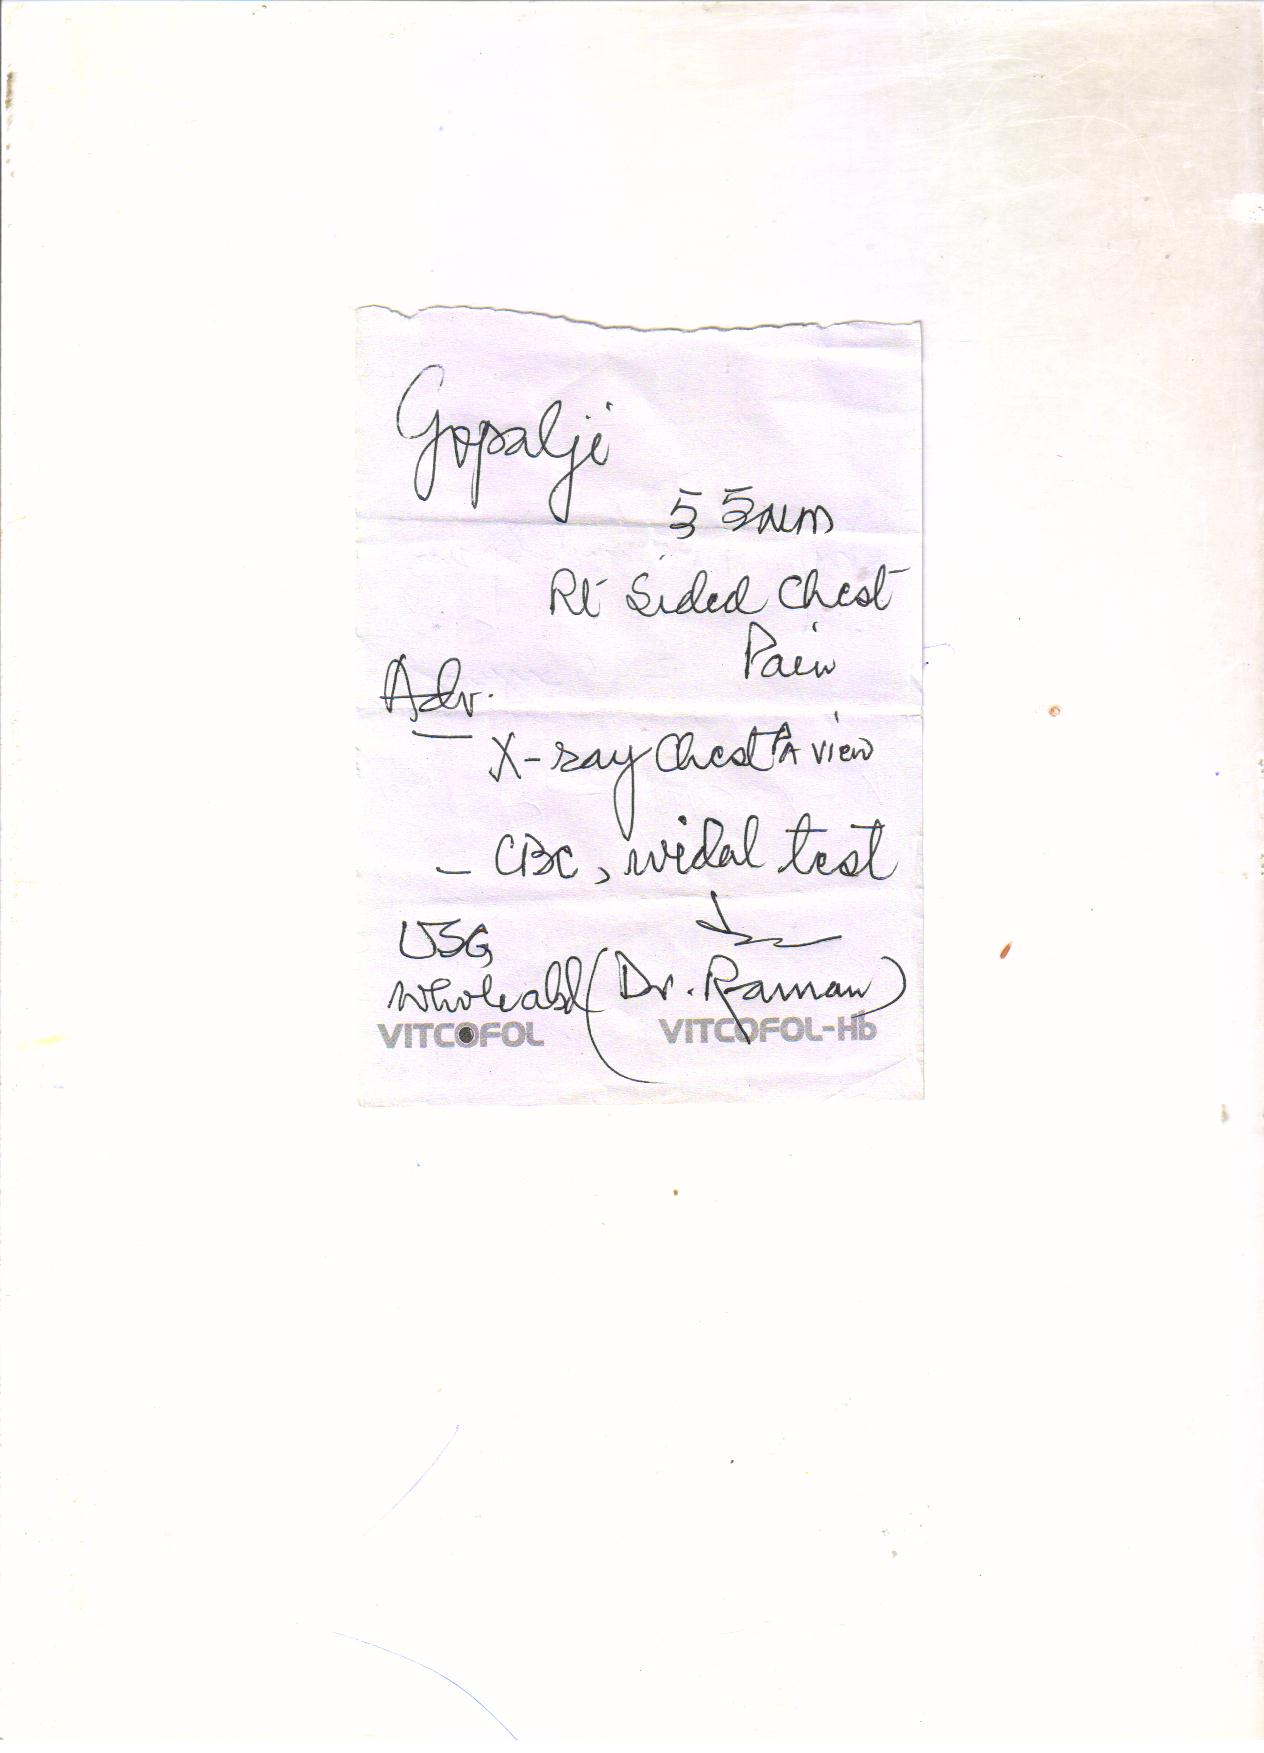 Gopalji
55 M
Rt Sided Chest
Pain
Adv.
X-ray Chest PA view
- CBC, widal test
USG
whole abd (Dr. Raman)
VITCOFOL VITCOFOL-Hb